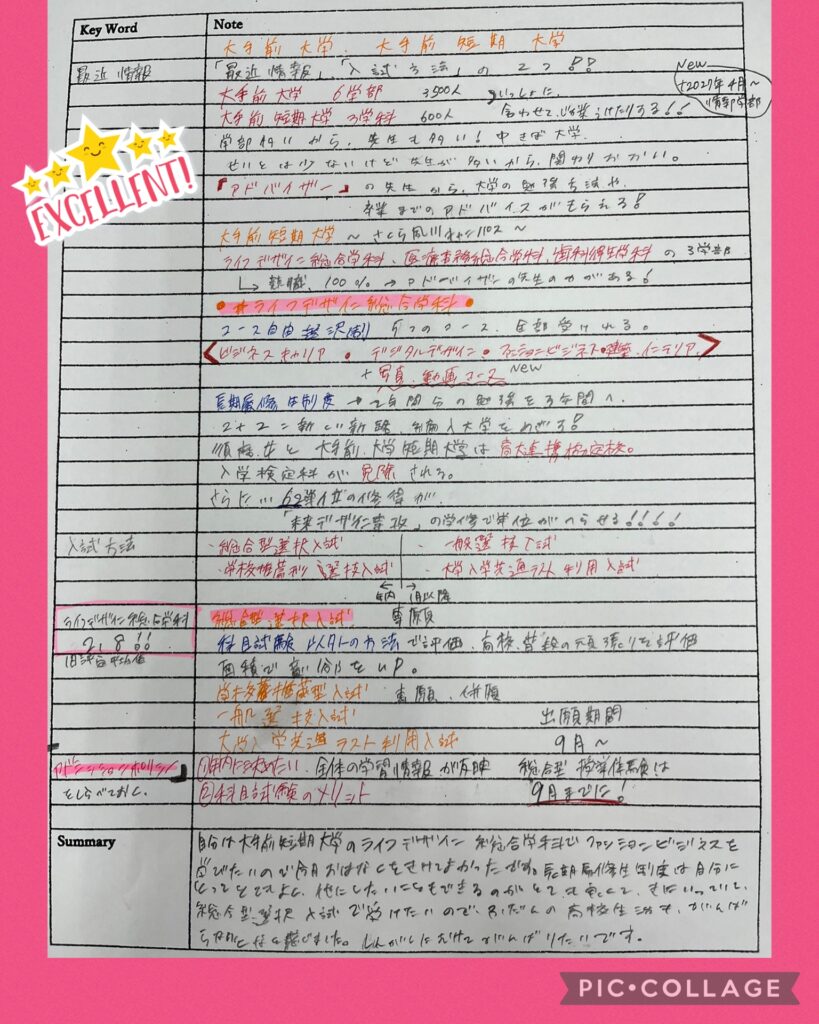 Key Word
Note
大手前大学、大手前短期大学
最近情報
「最近情報」、「入試方法」の2つ!!
New
大手前大学 6学部 3500人 いっしょに
+2027年4月~
情報学部
大手前短期大学 3学科 600人 合わせて
学部多いから、先生も多い! 中きぼ大学.
せいとは少ないけど先生が多いから、関わりおおい。
EXCELLENT!
「アドバイザー」の先生から、大学の勉強方法や、
卒業までのアドバイスがもらえる!
大手前短期大学 ~さくら夙川キャンパス~
ライフデザイン総合学科、医療事務総合学科、歯科衛生学科の3学部
就職、100% → アドバイザーの先生のおかげである!
#ライフデザイン総合学科
コース自由選択制! 5つのコース、全部受けれる。
<ビジネスキャリア・デジタルデザイン・ファッションビジネス・建築、インテリア>
+写真、動画コース New
長期履修生制度 → 2年間分の勉強を3年間へ
2+2=新しい進路、編入大学をめざす!
と大手前、大学短期大学は高大連携協定校。
入学検定料が免除される。
さらに… 62単位の修得が、
「未来デザイン専攻」の学修で単位がへらせる!!!!
入試方法
・総合型選抜入試
・一般選抜入試
・学校推薦型選抜入試
・大学入学共通テスト利用入試
年内
1月以降
ライフデザイン総合学科
2.8!!
総合型選抜入試 専願
科目試験以外の方法で評価、高校、普段の頑張りを評価
面積で
学校推薦型入試 専願、併願
一般選抜入試
出願期間
大学入学共通テスト利用入試
9月~
アドミッションポリシー」
をしらべておく。
①年内に決めたい、全体の学習情報が反映
総合型
②科目試験のメリット
9月までに!
Summary
自分は大手前短期大学のライフデザイン総合学科でファッションビジネスを
学びたいので今日おはなしをきけてよかったです。長期履修生制度は自分に
とってとてもよく、他にしたいこともできるのがとても
総合型選抜入試で受けたいので、ふだんの高校生活も、がんば
らないとなと感じました。しんがくにむけてがんばりたいです。
PIC•COLLAGE